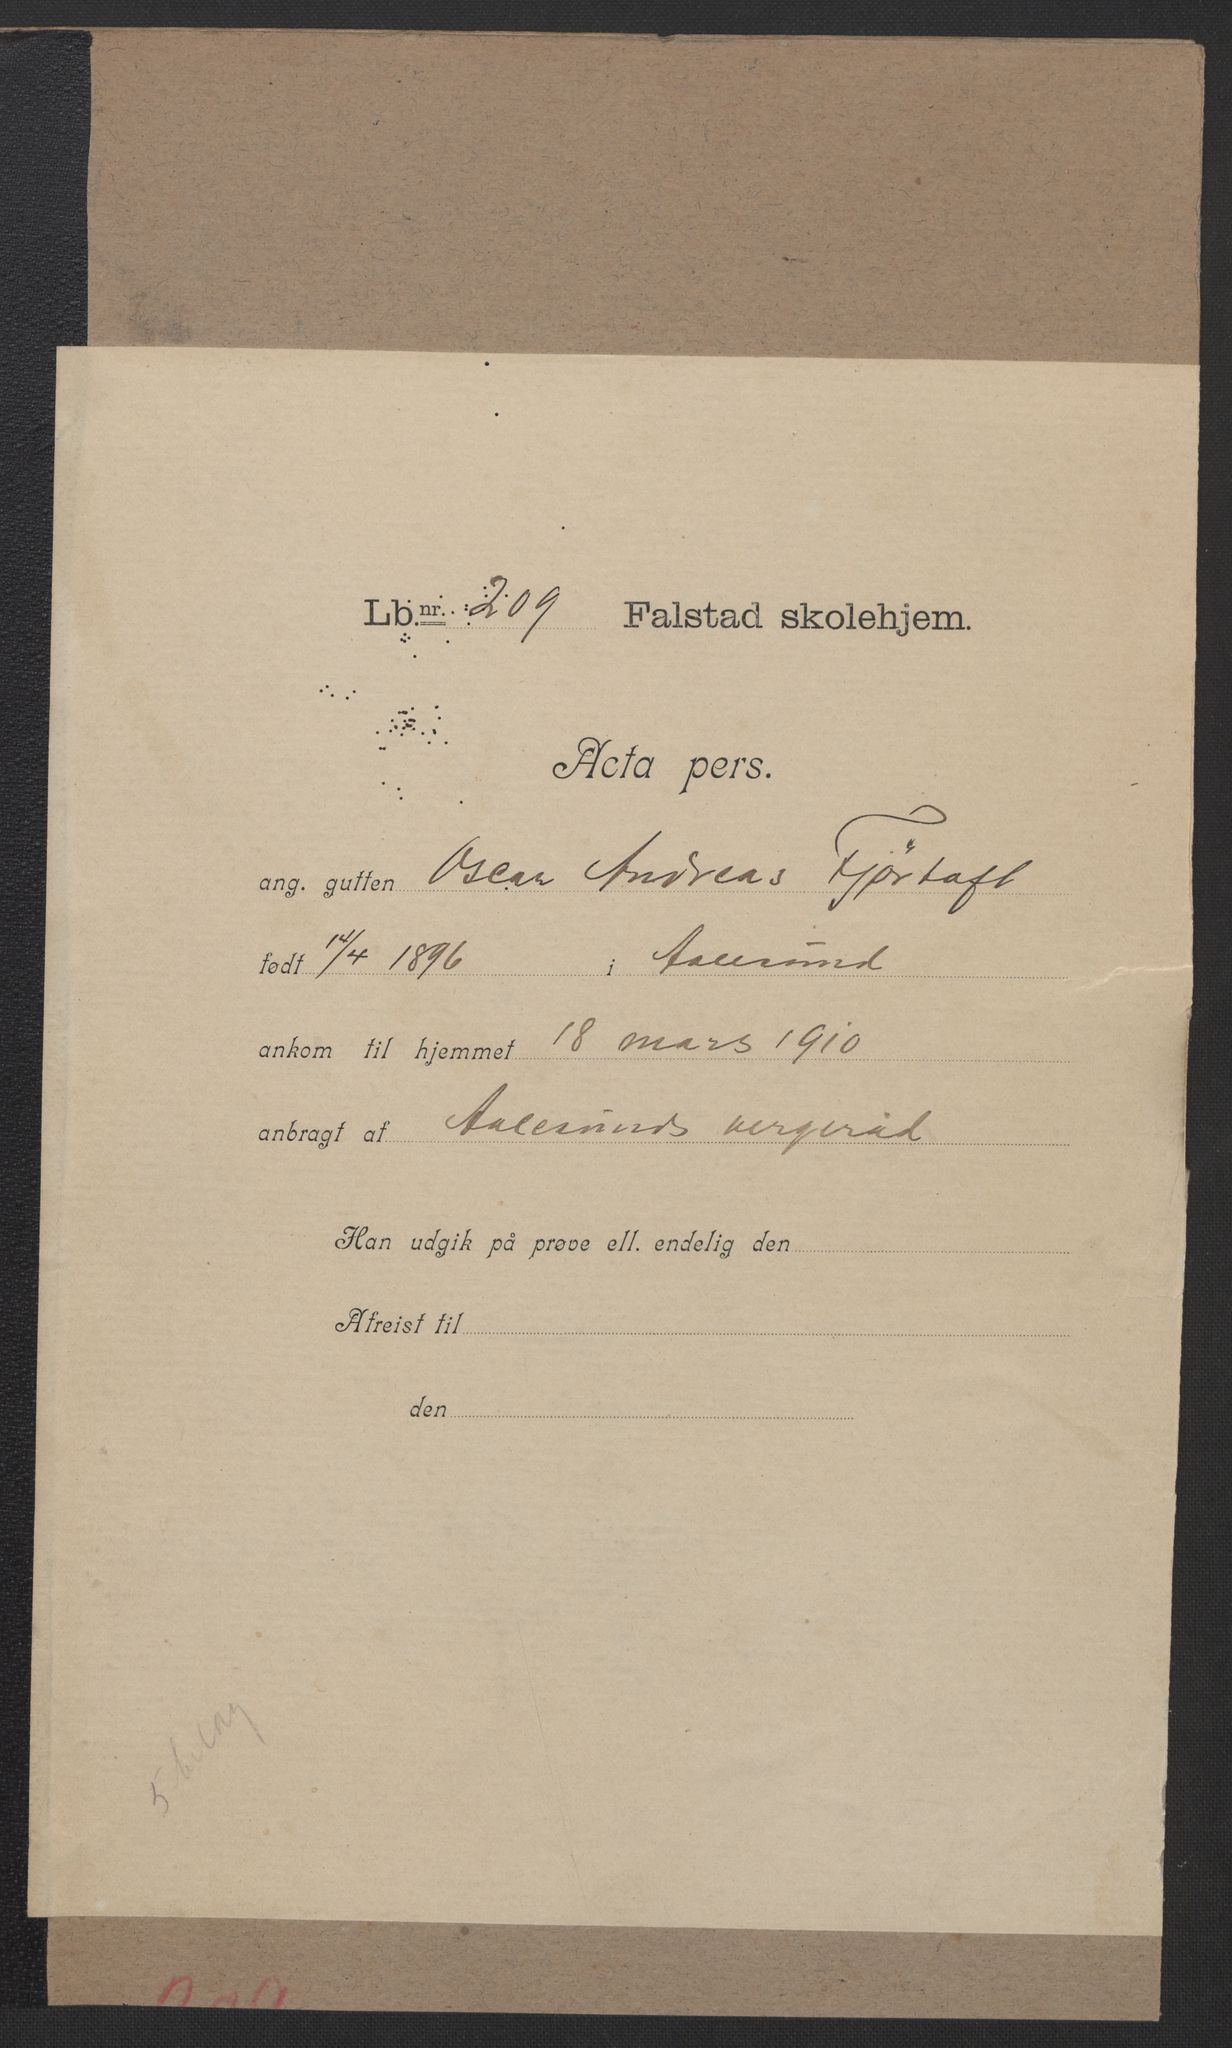 Lb. nr. 209 Falstad skolehjem.
Acta pers.
ang. gutten Oscar Andreas Fjörtoft
født 14/4 1896 i Aalesund
ankom til hjemmet 18 mars 1910
anbragt af Aalesunds vergeråd
Han udgik på prøve ell. endelig den
Afreist til
den
5 bilag
209